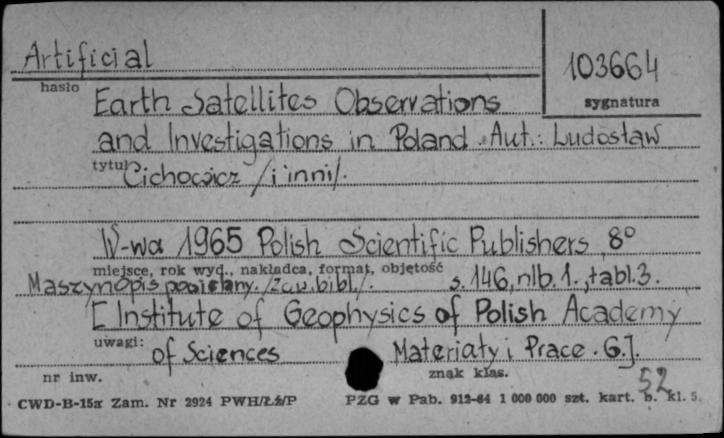 Artificial
103664
hasło
sygnatura
Earth Satellites Observations
and Investigations in Poland. Aut.: Ludosław
tytuł
Cichowicz /i inni/.
W-wa 1965 Polish Scientific Publishers 8°
miejsce, rok wyd., nakładca, format, objętość
Maszynopis powielany. /Zaw. bibl./. s. 146, nlb. 1., tabl. 3.
[Institute of Geophysics of Polish Academy
uwagi: of Sciences Materiały i Prace. 6.].
nr inw.
znak klas.
52
CWD-B-15a Zam. Nr 2924 PWH/Łż/P PZG w Pab. 912-64 1 000 000 szt. kart. b. kl. 5